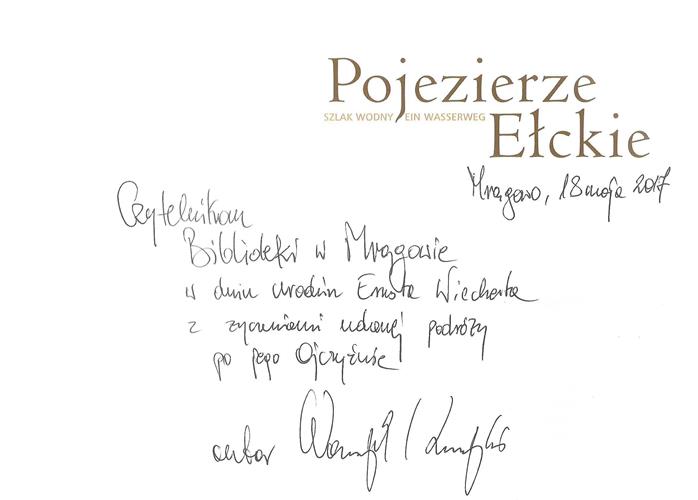 Pojezierze
SZLAK WODNY EIN WASSERWEG
Ełckie
Mrągowo, 18 maja 2017
Czytelnikom
Biblioteki w Mrągowie
w dniu urodzin Ernsta Wiecherta
z życzeniami udanej podróży
po jego Ojczyźnie
autor